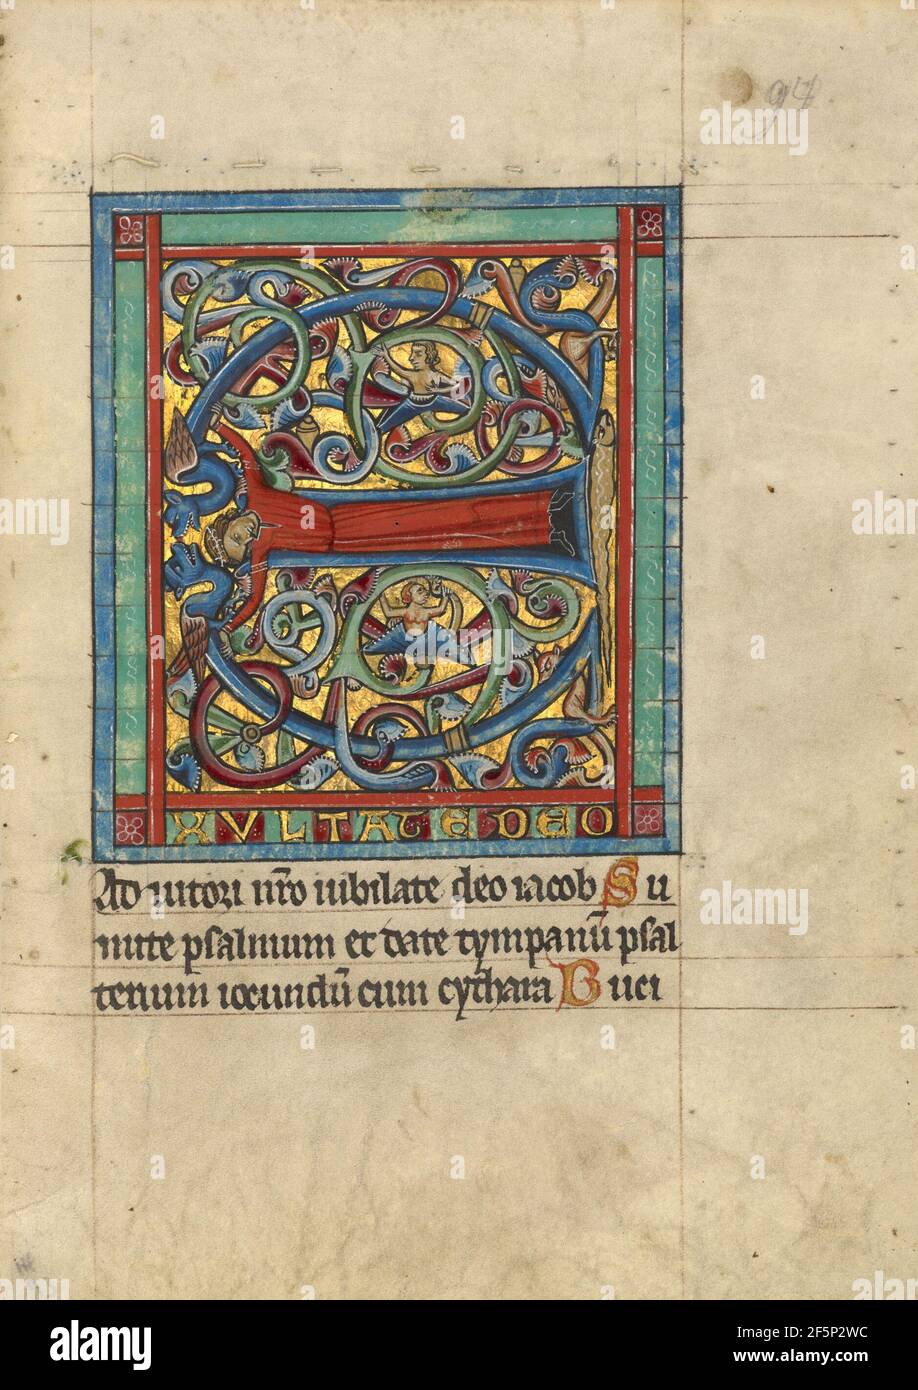 94
E
XVLTATE DEO
Ad iutori nr̄o iubilate deo iacob Su
mite psalmum et date tympanū psal
terium iocundū cum cythara Buci
a
alamy
alamy
Image ID: 2F5P2WC
www.alamy.com